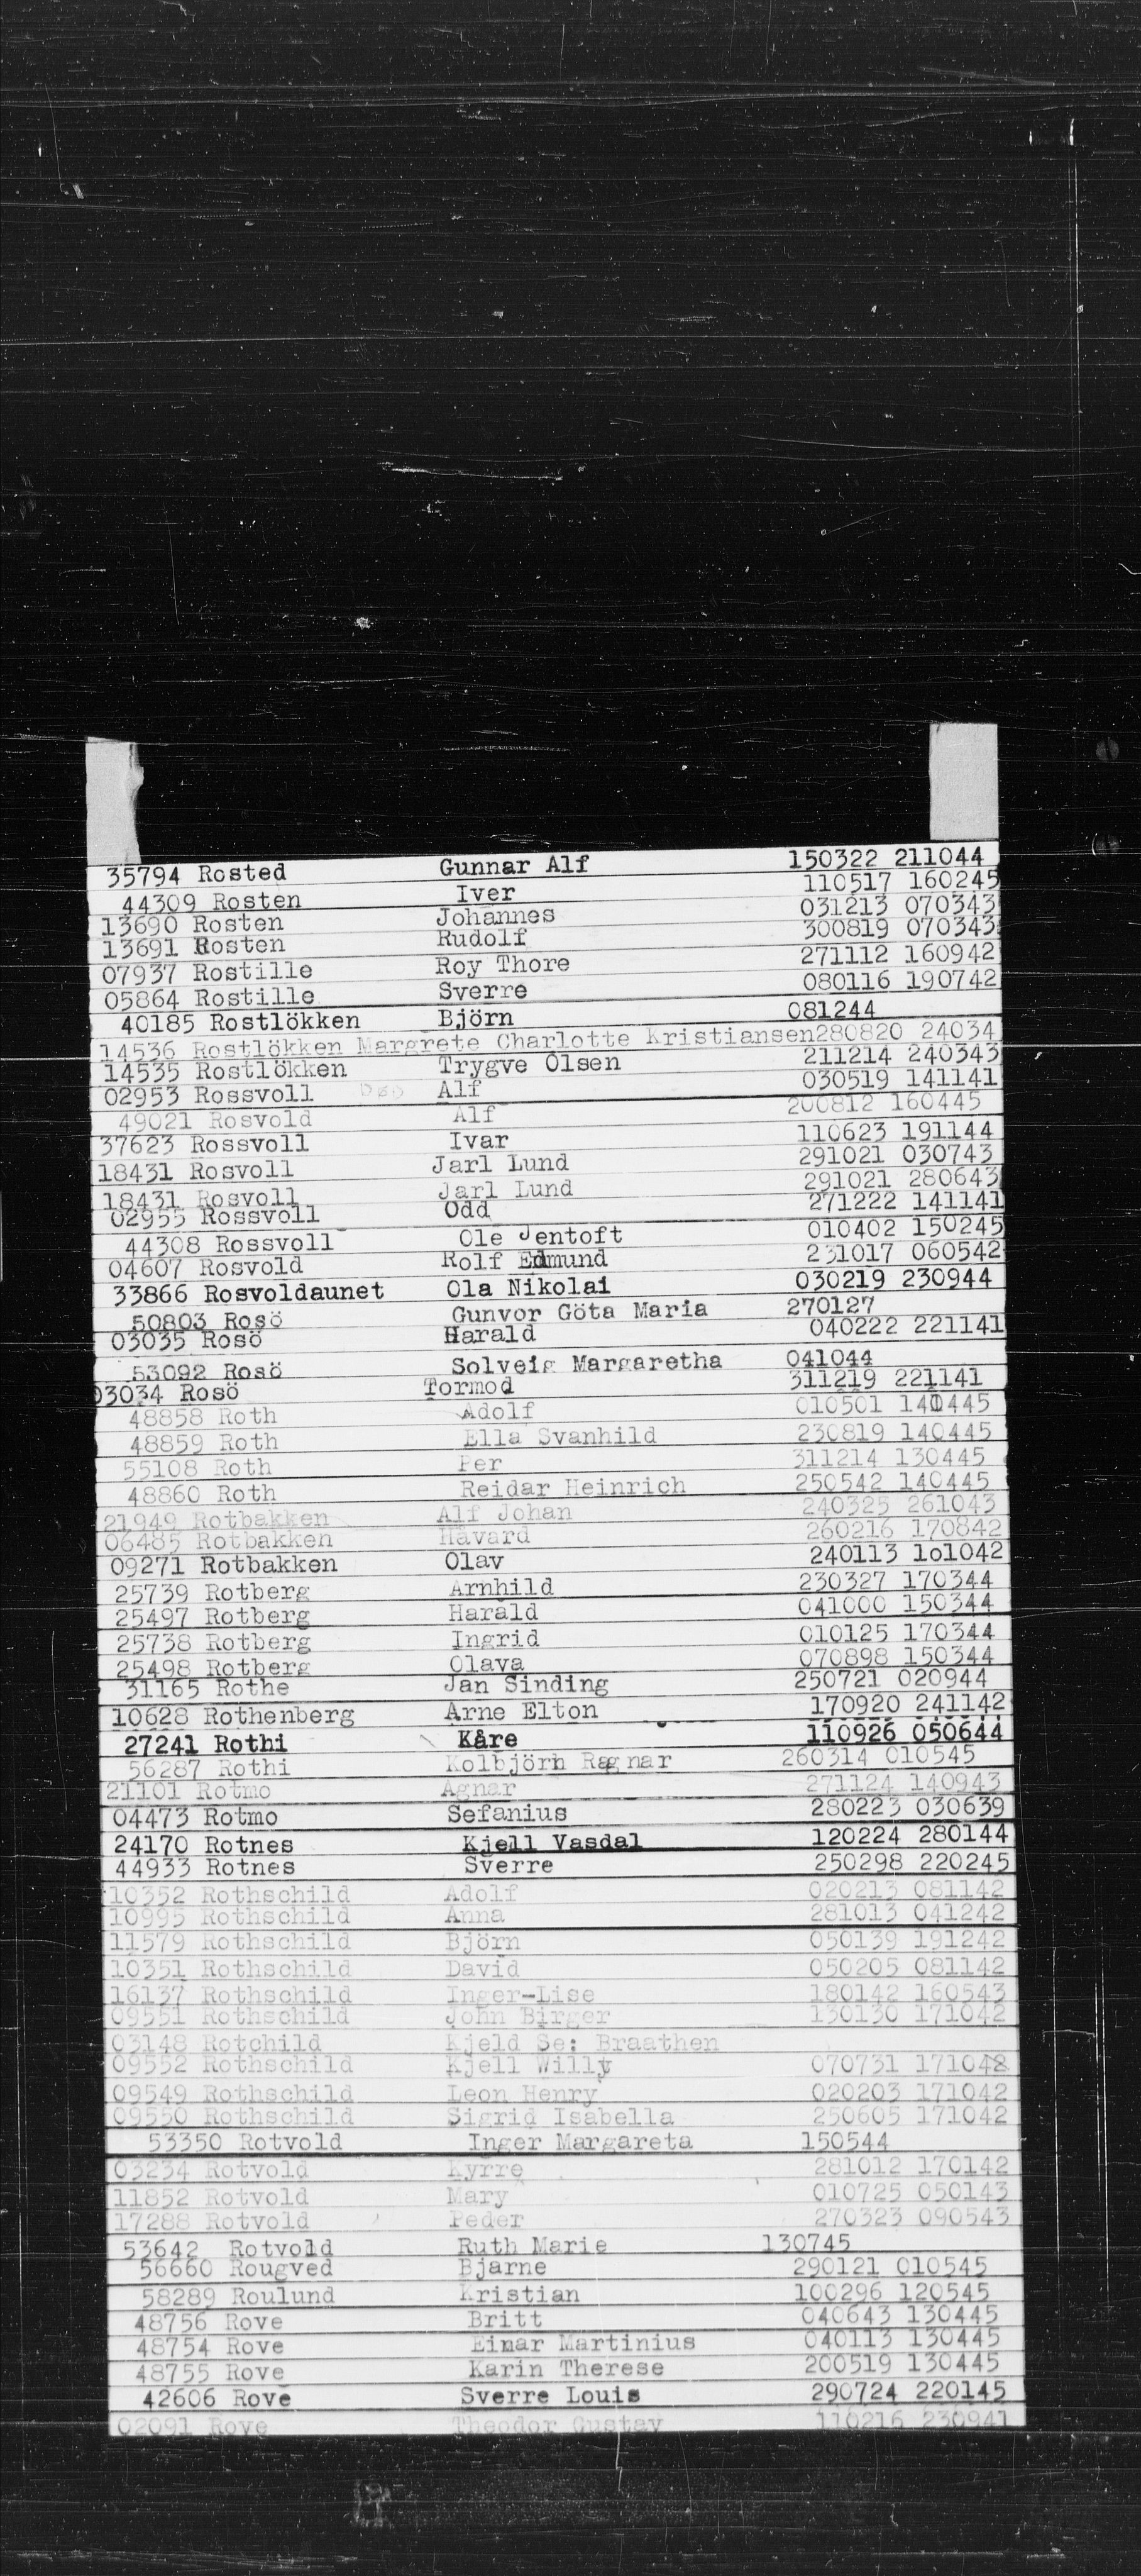 35794 Rosted Gunnar Alf 150322 211044
44309 Rosten Iver 110517 160245
13690 Rosten Johannes 031213 070343
13691 Rosten Rudolf 300819 070343
07937 Rostille Roy Thore 271112 160942
05864 Rostille Sverre 080116 190742
40185 Rostlökken Björn 081244
14536 Rostlökken Margrete Charlotte Kristiansen280820 24034
14535 Rostlökken Trygve Olsen 211214 240343
02953 Rossvoll Alf 030519 141141
49021 Rosvold Alf 200812 160445
37623 Rossvoll Ivar 110623 191144
18431 Rosvoll Jarl Lund 291021 030743
18431 Rosvoll Jarl Lund 291021 280643
02955 Rossvoll Odd 271222 141141
44308 Rossvoll Ole Jentoft 010402 150245
04607 Rosvold Rolf Edmund 231017 060542
33866 Rosvoldaunet Ola Nikolai 030219 230944
50803 Rosö Gunvor Göta Maria 270127
03035 Rosö Harald 040222 221141
53092 Rosö Solveig Margaretha 041044
03034 Rosö Tormod 311219 221141
48858 Roth Adolf 010501 140445
48859 Roth Ella Svanhild 230819 140445
55108 Roth Per 311214 130445
48860 Roth Reidar Heinrich 250542 140445
21949 Rotbakken Alf Johan 240325 261043
06485 Rotbakken Håvard 260216 170842
09271 Rotbakken Olav 240113 1o1042
25739 Rotberg Arnhild 230327 170344
25497 Rotberg Harald 041000 150344
25738 Rotberg Ingrid 010125 170344
25498 Rotberg Olava 070898 150344
31165 Rothe Jan Sinding 250721 020944
10628 Rothenberg Arne Elton 170920 241142
27241 Rothi Kåre 110926 050644
56287 Rothi Kolbjörn Ragnar 260314 010545
21101 Rotmo Agnar 271124 140943
04473 Rotmo Sefanius 280223 030639
24170 Rotnes Kjell Vasdal 120224 280144
44933 Rotnes Sverre 250298 220245
10352 Rothschild Adolf 020213 081142
10995 Rothschild Anna 281013 041242
11579 Rothschild Björn 050139 191242
10351 Rothschild David 050205 081142
16137 Rothschild Inger-Lise 180142 160543
09551 Rothschild John Birger 130130 171042
03148 Rotchild Kjeld Se: Braathen
09552 Rothschild Kjell Willy 070731 171042
09549 Rothschild Leon Henry 020203 171042
09550 Rothschild Sigrid Isabella 250605 171042
53350 Rotvold Inger Margareta 150544
03234 Rotvold Kyrre 281012 170142
11852 Rotvold Mary 010725 050143
17288 Rotvold Peder 270323 090543
53642 Rotvold Ruth Marie 130745
56660 Rougved Bjarne 290121 010545
58289 Roulund Kristian 100296 120545
48756 Rove Britt 040643 130445
48754 Rove Einar Martinius 040113 130445
48755 Rove Karin Therese 200519 130445
42606 Rove Sverre Louis 290724 220145
02091 Rove Theodor Gustav 110216 230941